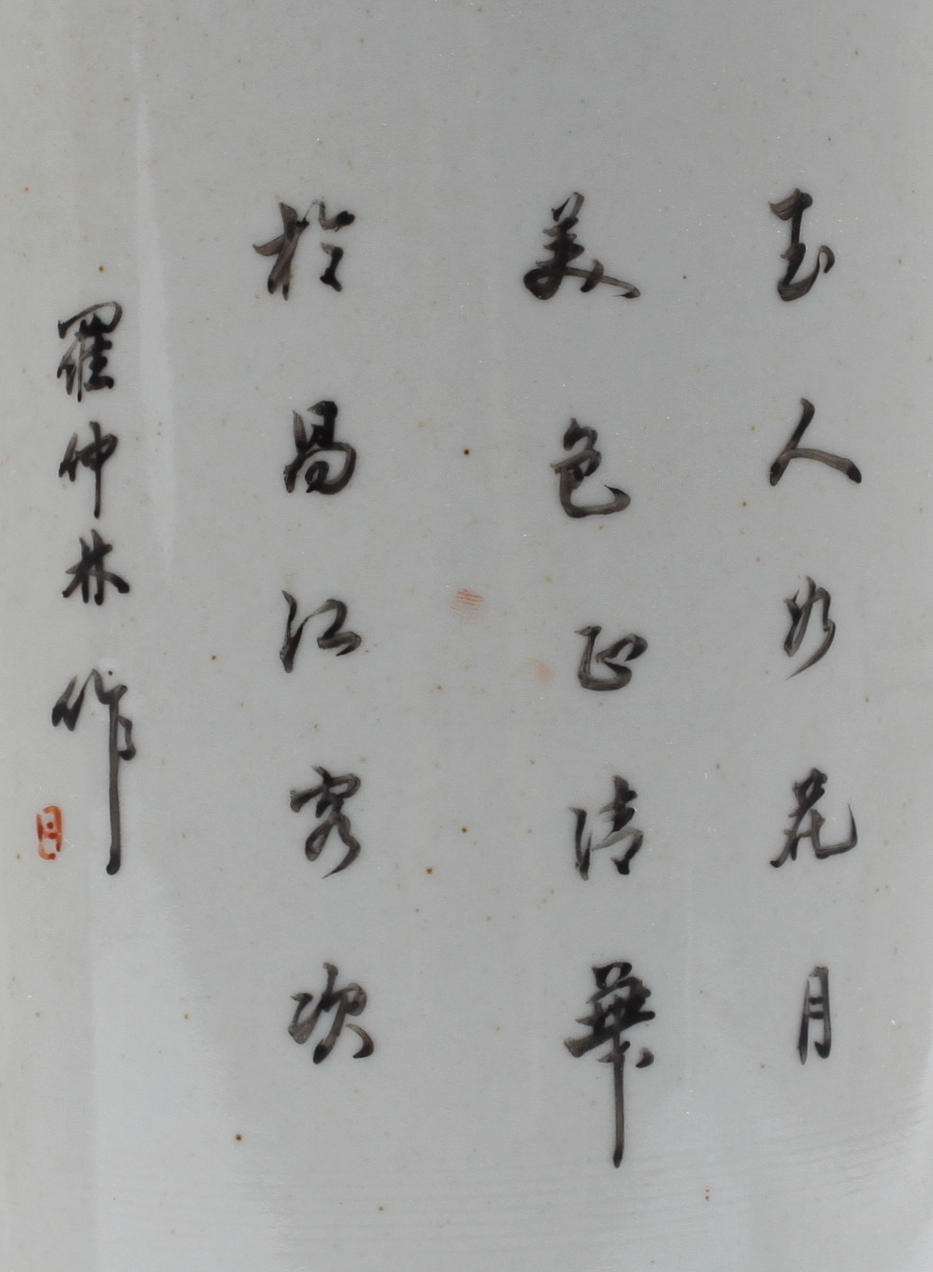 玉人如花月
美色正清華
於昌江客次
羅仲林作